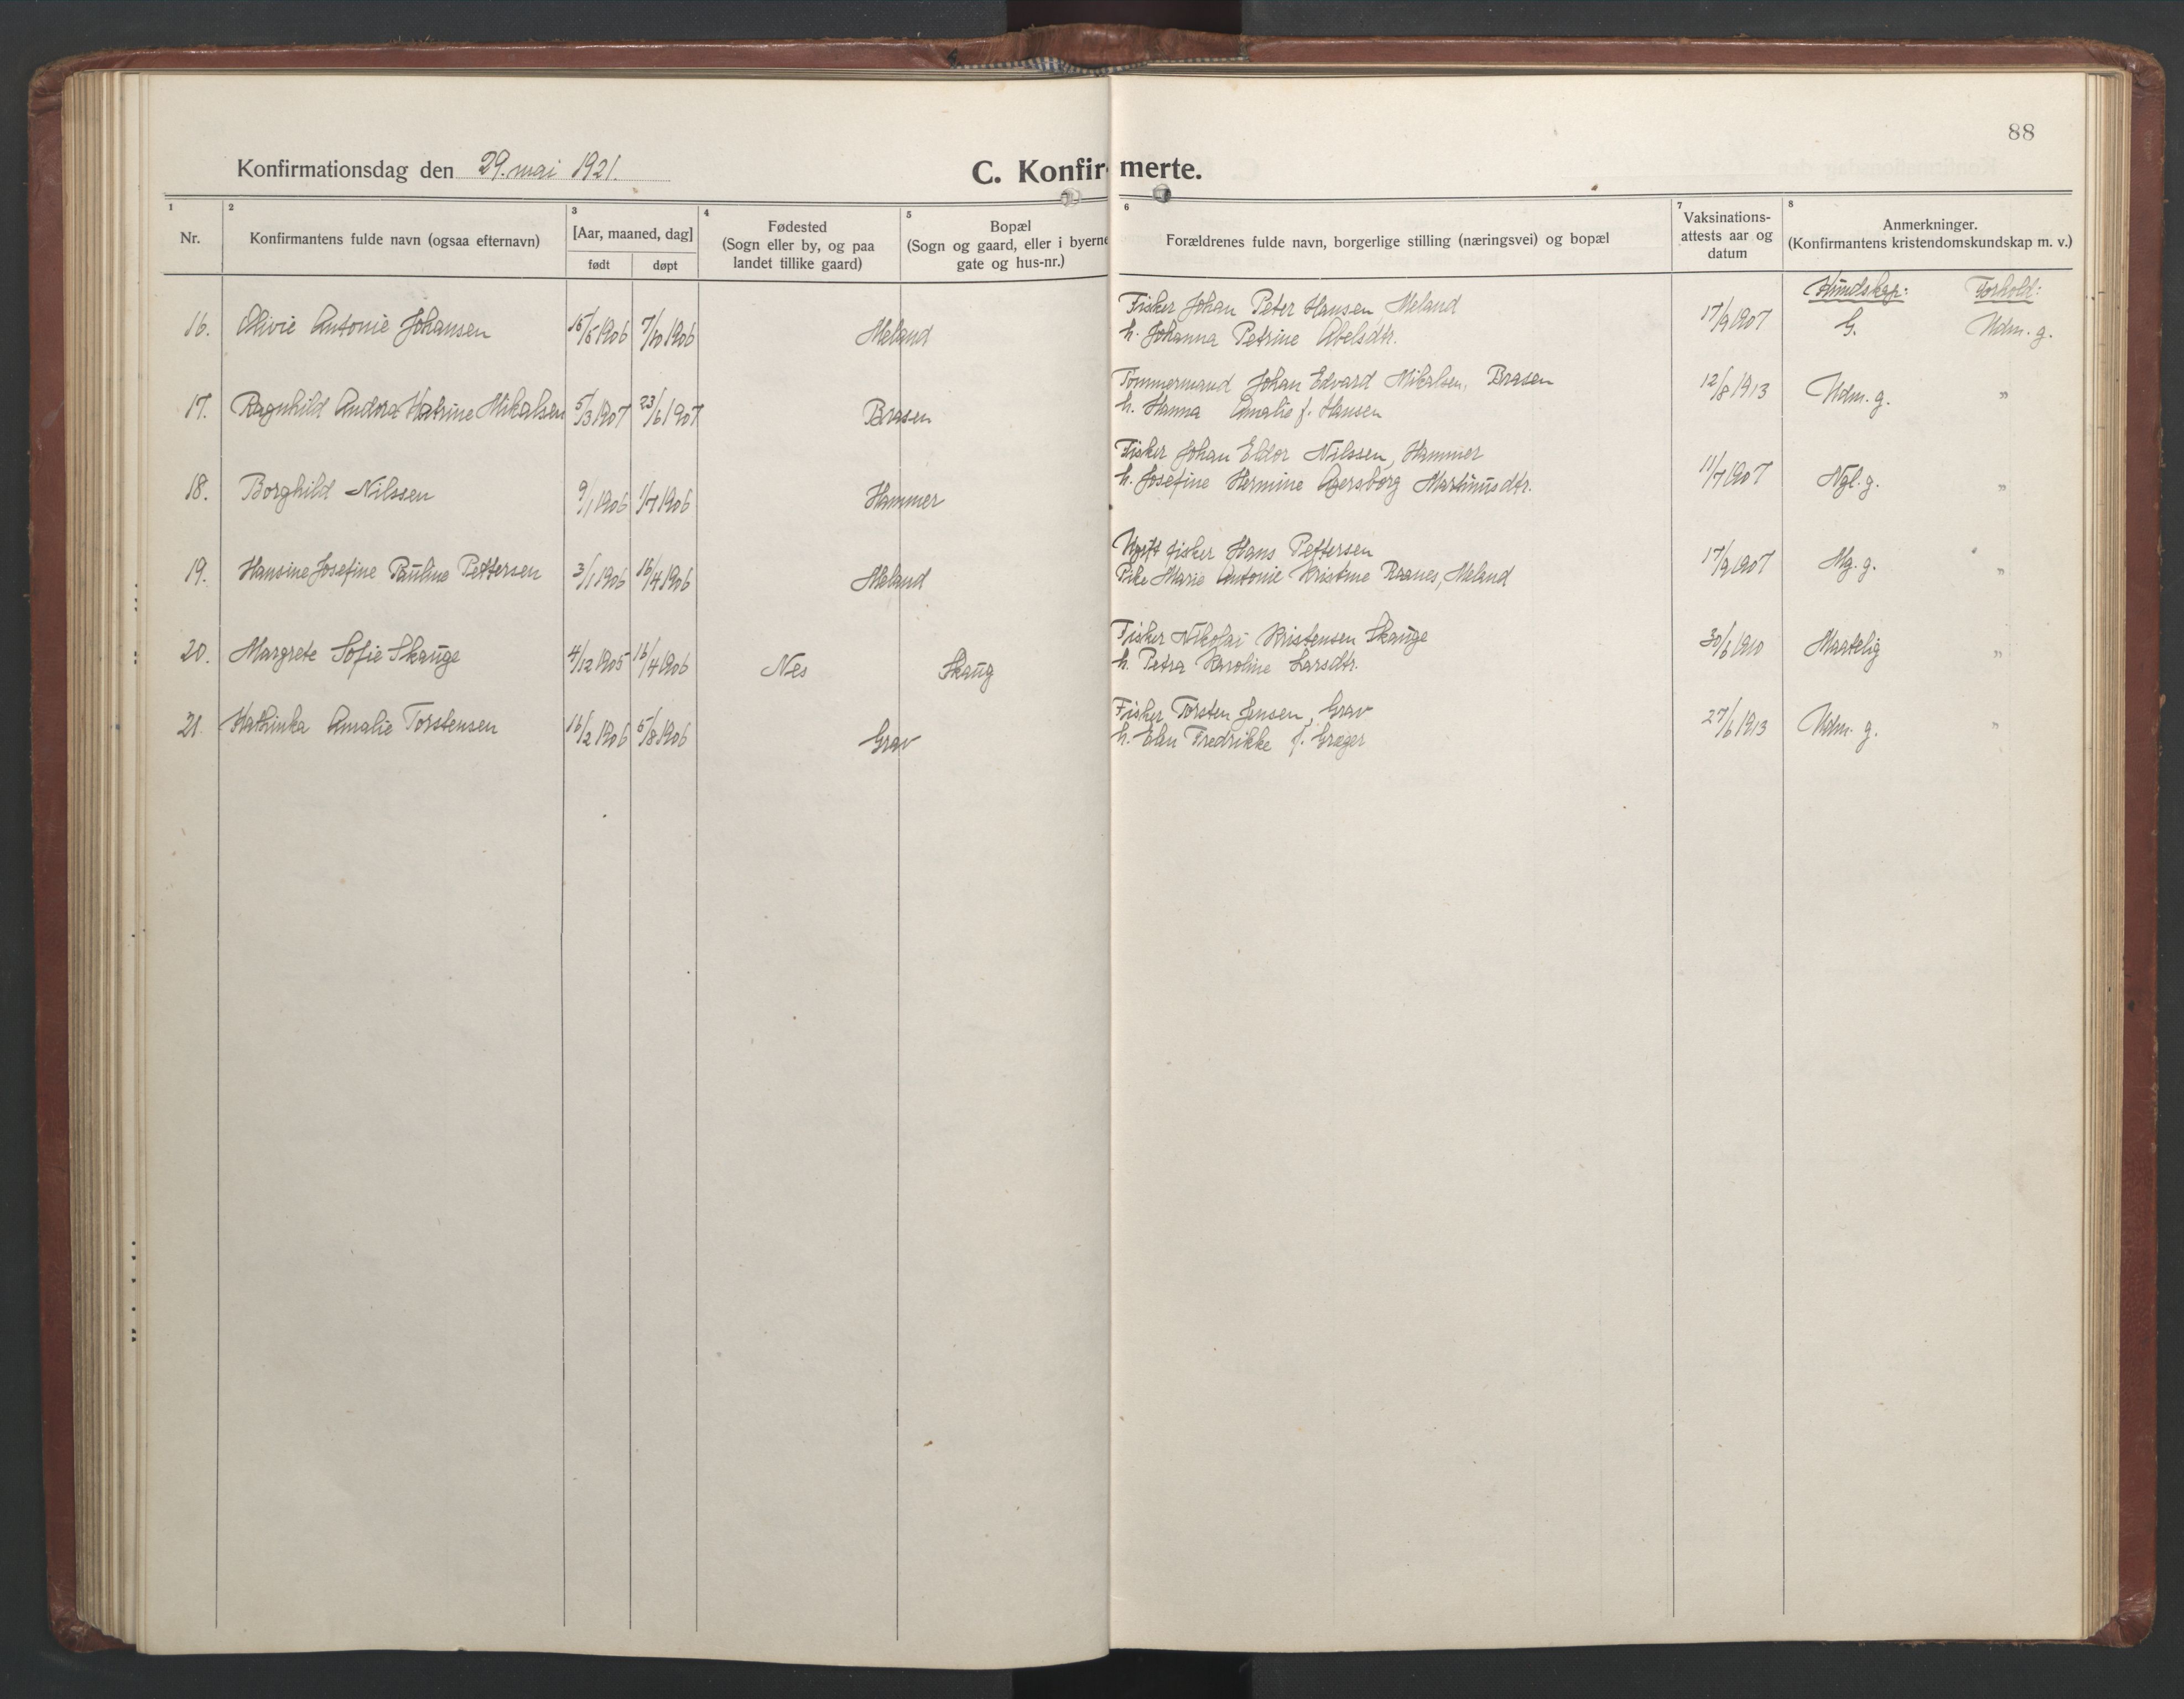 88
Konfirmationsdag den 29. mai 1921. C. Konfirmerte.
1 2 3 4 5 6 7 8
Nr. Konfirmantens fulde navn (ogsaa efternavn) [Aar, maaned, dag] født døpt Fødested (Sogn eller by, og paa landet tillike gaard) Bopæl (Sogn og gaard, eller i byerne gate og hus-nr.) Forældrenes fulde navn, borgerlige stilling (næringsvei) og bopæl Vaksinations-attests aar og datum Anmerkninger. (Konfirmantens kristendomskundskap m. v.)
Kundskap: Forhold:
16. Olivie Antonie Johansen 15/5 1906 7/10 1906 Meland Fisker Johan Peter Hansen Meland 17/9 1907 G. Udm. g.
h. Johanna Petrine Abelsdtr.
17. Ragnhild Andrea Katrine Mikalsen 5/3 1907 23/6 1907 Brasen Tømmermand Johan Edvard Mikalsen, Brasen 12/8 1913 Udm. g. "
h. Hanna Amalie f. Hansen
18. Borghild Nilssen 9/1 1906 1/7 1906 Hammer Fisker Johan Eldor Nilssen, Hammer 11/7 1907 Ngl. g. "
h. Josefine Hermine Agersborg Martinusdtr.
19. Hansine Josefine Pauline Pettersen 3/1 1906 16/4 1906 Meland Ugift fisker Hans Pettersen 17/9 1907 Mg. g. "
Pike Marie Antonie Kristine Raanes, Meland
20. Margrete Sofie Skauge 4/12 1905 16/4 1906 Nes Skaug Fisker Nikolai Kristensen Skauge 30/6 1910 Maatelig "
h. Petra Karoline Larsdtr.
21. Kathinka Amalie Torstensen 16/2 1906 5/8 1906 Grav Fisker Torsten Jensen, Grav 27/6 1913 Udm. g. "
h. Elen Fredrikke f. Grøger